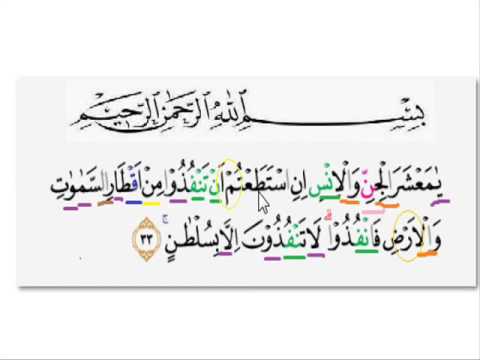 بِسْمِ اللّٰهِ الرَّحْمٰنِ الرَّحِيْمِ
يٰمَعْشَرَ الْجِنِّ وَالْاِنْسِ اِنِ اسْتَطَعْتُمْ اَنْ تَنْفُذُوْا مِنْ اَقْطَارِ السَّمٰوٰتِ
وَالْاَرْضِ فَانْفُذُوْاۗ لَا تَنْفُذُوْنَ اِلَّا بِسُلْطٰنٍۚ ٣٣